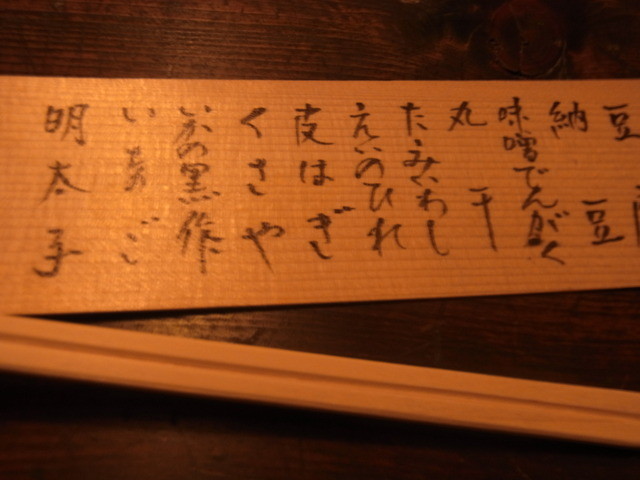 豆
納豆
味噌でんがく
丸干
たゝみいわし
えいのひれ
皮はぎ
くさや
いかの黒作
いなご
明太子